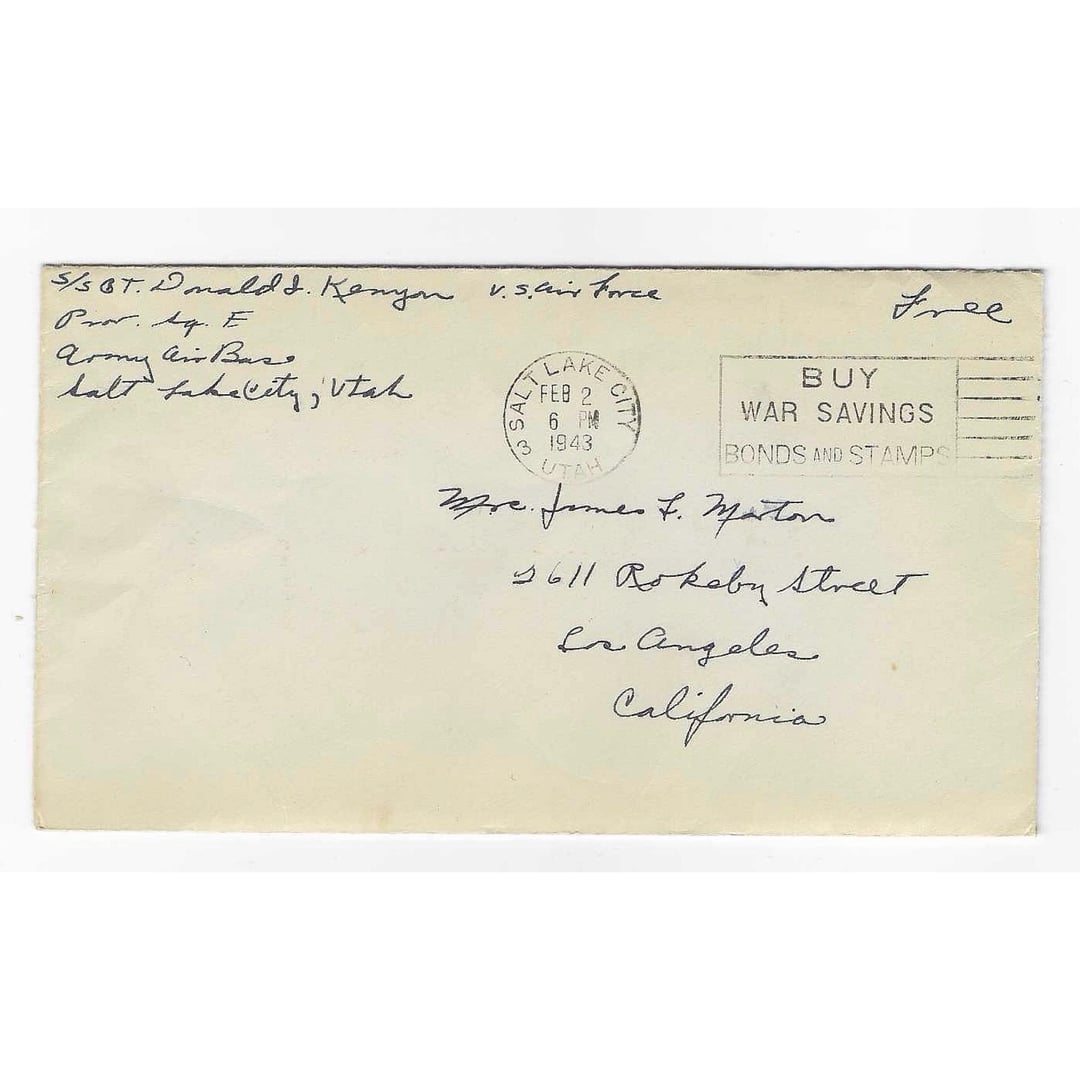 S/SGT. Donald I. Kenyon U.S. Air Force
Free
Prov. Sq. E
Army Air Base
Salt Lake City, Utah
3 SALT LAKE CITY
FEB 2
6 PM
1943
UTAH
BUY
WAR SAVINGS
BONDS AND STAMPS
Mrs. James F. Morton
2611 Rokeby Street
Los Angeles
California